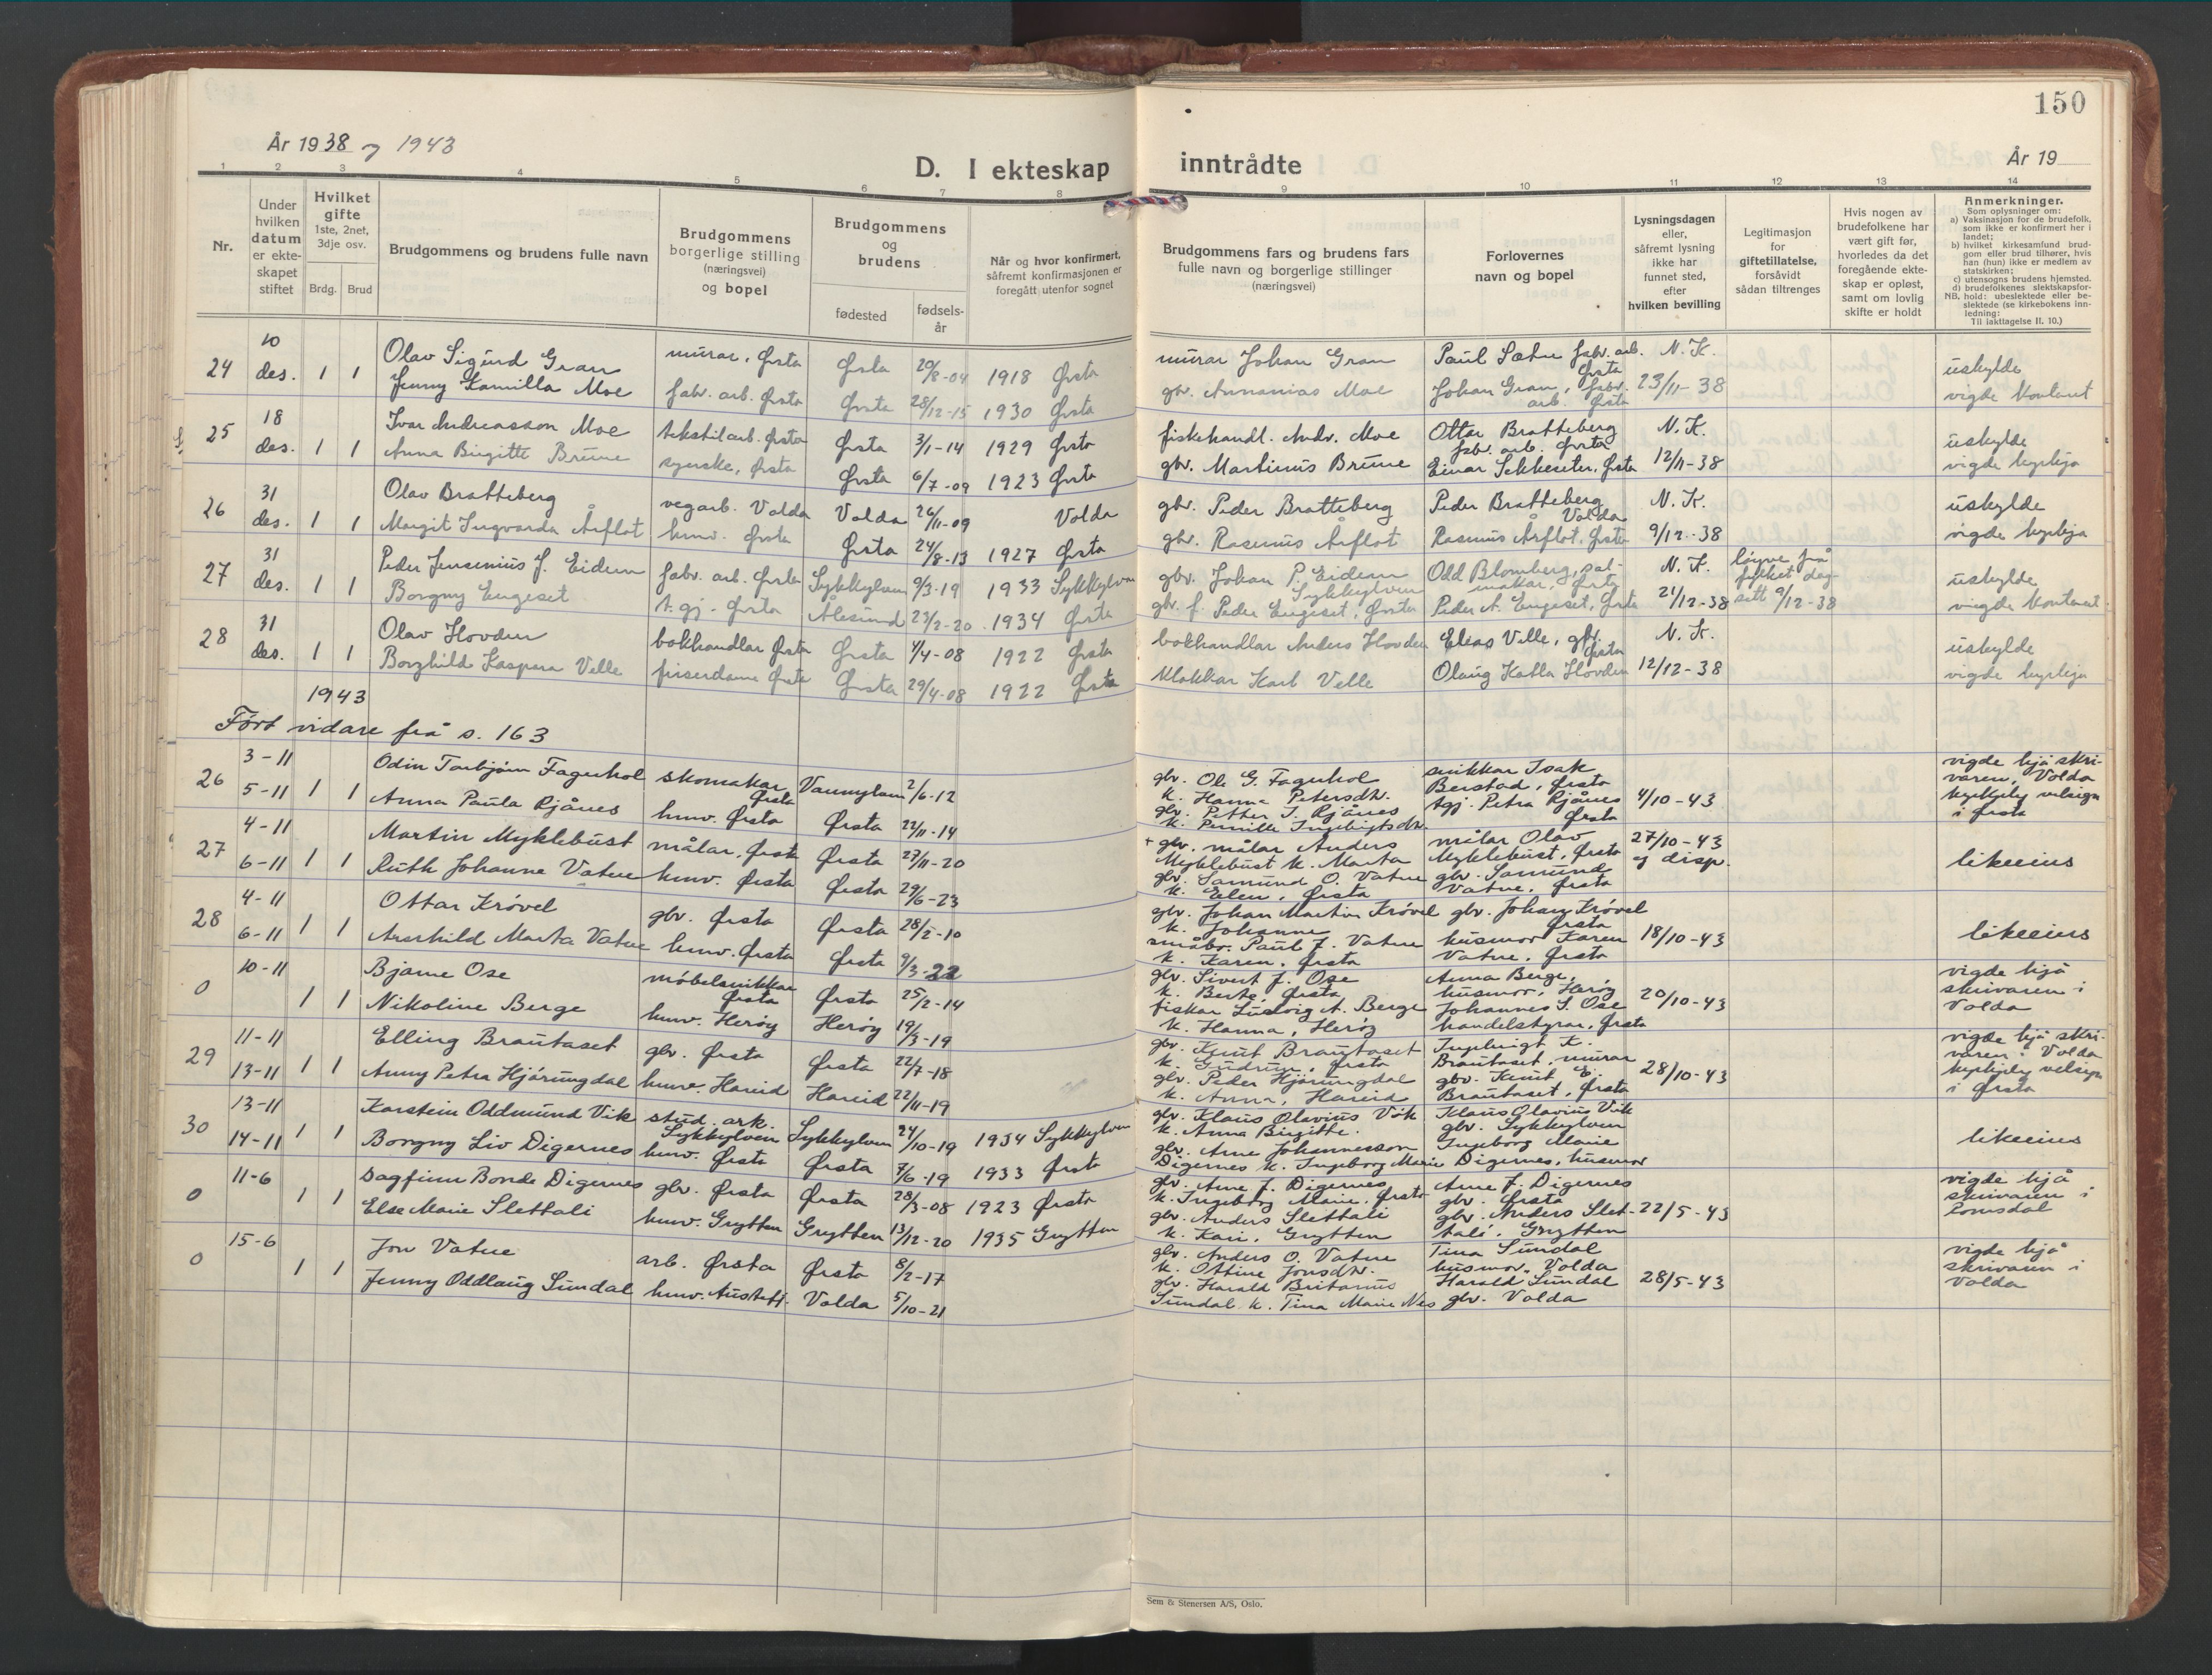 150
År 1938 og 1943
D. I ekteskap inntrådte
År 19
1 2 3 4 5 6 7 8 9 10 11 12 13 14
Nr.
Under hvilken datum er ekteskapet stiftet
Hvilket gifte 1ste, 2net, 3dje osv.
Brdg. Brud
Brudgommens og brudens fulle navn
Brudgommens borgerlige stilling (næringsvei) og bopel
Brudgommens og brudens
fødested
fødselsår
Når og hvor konfirmert, såfremt konfirmasjonen er foregått utenfor sognet
Brudgommens fars og brudens fars fulle navn og borgerlige stillinger (næringsvei)
Forlovernes navn og bopel
Lysningsdagen eller, såfremt lysning ikke har funnet sted, efter hvilken bevilling
Legitimasjon for giftetillatelse, forsåvidt sådan tiltrenges
Hvis nogen av brudefolkene har vært gift før, hvorledes da det foregående ekteskap er opløst, samt om lovlig skifte er holdt
Anmerkninger.
Som oplysninger om:
a) Vaksinasjon for de brudefolk, som ikke er konfirmert her i landet;
b) hvilket kirkesamfund brudgom eller brud tilhører, hvis han (hun) ikke er medlem av statskirken;
c) utensogns brudens hjemsted.
d) brudefolkenes slektskapsforhold: ubeslektede eller beslektede (se kirkebokens innledning:
NB. Til iakttagelse II. 10.)
24 10 des. 1 1
Olav Sigurd Gran murar, Ørsta Ørsta 20/8-04 1918 Ørsta murar Johan Gran Paul Sætre fabr. arb. Ørsta N. K. uskylde
Jenny Kamilla Moe fabr. arb. Ørsta Ørsta 28/12-15 1930 Ørsta gbr. Annanias Moe Johan Gran, fabr. arb. Ørsta 23/11-38 vigde kontoret
25 18 des. 1 1
Ivar Andreasson Moe tekstilarb. Ørsta Ørsta 3/1-14 1929 Ørsta fiskehandl. Andr. Moe Ottar Bratteberg fabr. arb. Ørsta N. K. uskylde
Anna Birgitte Brune syerske, Ørsta Ørsta 6/7-09 1923 Ørsta gbr. Martinus Brune Einar Sekkeseter, Ørsta 12/11-38 vigde kyrkja
26 31 des. 1 1
Olav Bratteberg vegarb. Volda Volda 26/11-09 Volda gbr. Peder Bratteberg Peder Bratteberg Volda N. K. uskylde
Margit Ingvarda Årflot husv. Ørsta Ørsta 24/8-13 1927 Ørsta gbr. Rasmus Årflot Rasmus Årflot, Ørsta 9/12-38 vigde kyrkja
27 31 des. 1 1
Peder Jensenius J. Eidem fabr. arb. Ørsta Sykkylven 9/3-19 1933 Sykkylven gbr. Johan P. Eidem Sykkylven Odd Blomberg, salmakar, Ørsta N. K. løyve frå fylket dagsett 9/12-38 uskylde
Borgny Engeset t. gj. Ørsta Ålesund 23/2-20 1934 Ørsta gbr. f. Peder Engeset, Ørsta Peder A. Engeset, Ørsta 21/12-38 vigde kontoret
28 31 des. 1 1
Olav Hovden bokhandlar Ørsta Ørsta 1/4-08 1922 Ørsta bokhandlar Anders Hovden Elias Velle, gbr. Ørsta N. K. uskylde
Borghild Kaspara Velle friserdame Ørsta Ørsta 29/4-08 1922 Ørsta klokkar Karl Velle Olaug Katla Hovden 12/12-38 vigde kyrkja
1943
Ført vidare frå s. 163
26 3-11 5-11 1 1
Odin Torbjørn Fagerhol skomakar Ørsta Vannylven 2/6-12 gbr. Ole G. Fagerhol k. Hanna Petersdtr. snikkar Isak Berstad, Ørsta vigde hjå skrivaren, Volda
Anna Paula Rjånes husv. Ørsta Ørsta 22/11-14 gbr. Petter I. Rjånes k. Pernille Ingebrigtsdtr. tgj. Petra Rjånes Ørsta 4/10-43 kyrkjeleg velsign i Ørsta
27 4-11 6-11 1 1
Martin Myklebust målar, Ørsta Ørsta 27/11-20 + gbr. målar Anders Myklebust k. Marta målar Olav Myklebust, Ørsta 27/10-43 og disp. likeeins
Ruth Johanne Vatne husv. Ørsta Ørsta 29/6-23 gbr. Samund O. Vatne k. Elen, Ørsta gbr. Samund Vatne, Ørsta
28 4-11 6-11 1 1
Ottar Krøvel gbr. Ørsta Ørsta 28/2-10 gbr. Johan Martin Krøvel k. Johanne gbr. Johan Krøvel Ørsta 18/10-43 likeeins
Arnhild Marta Vatne husv. Ørsta Ørsta 9/3-22 småbr. Paul J. Vatne k. Karen, Ørsta husmor Karen Vatne, Ørsta
0 10-11 1 1
Bjarne Ose møbelsnikkar Ørsta Ørsta 25/2-14 gbr. Sivert J. Ose k. Berte, Ørsta Anna Berge, husmor, Herøy 20/10-43 vigde hjå skrivaren i Volda
Nikoline Berge husv. Herøy Herøy 19/3-19 fiskar Ludvig A. Berge k. Hanna, Herøy Johannes S. Ose handelstyrar, Ørsta
29 11-11 13-11 1 1
Elling Brautaset gbr. Ørsta Ørsta 22/7-18 gbr. Knut Brautaset k. Gudrun, Ørsta Ingebrigt K. Brautaset, murar 28/10-43 vigde hjå skrivaren i Volda
Anny Petra Hjørungdal husv. Hareid Hareid 22/11-19 gbr. Peder Hjørungdal k. Anna, Hareid gbr. Knut E. Brautaset, Ørsta kyrkjeleg velsign i Ørsta
30 13-11 14-11 1 1
Karstein Oddmund Vik stud. ark. Sykkylven Sykkylven 24/10-19 1934 Sykkylven gbr. Klaus Olavius Vik k. Anna Birgitte. Klaus Olavius Vik gbr. Sykkylven likeeins
Borgny Liv Digernes husv. Ørsta Ørsta 7/6-19 1933 Ørsta gbr. Arne Johannesson Digernes k. Ingeborg Marie Ingeborg Marie Digernes, husmor
0 11-6 1 1
Dagfinn Bonde Digernes gbr. Ørsta Ørsta 28/3-08 1923 Ørsta gbr. Arne J. Digernes k. Ingeborg Marie, Ørsta Arne J. Digernes gbr. Ørsta 22/5-43 vigde hjå skrivaren i Romsdal
Else Marie Slettali husv. Grytten Grytten 13/12-20 1935 Grytten gbr. Anders Slettali k. Kari, Grytten gbr. Anders Slettali, Grytten
0 15-6 1 1
Jon Vatne arb. Ørsta Ørsta 8/2-17 gbr. Anders O. Vatne k. Ottine Jonsdtr. Tina Sundal husmor, Volda 28/5-43 vigde hjå skrivaren i Volda
Jenny Oddlaug Sundal husv. Austefj. Volda 5/10-21 gbr. Harald Britanus Sundal k. Tina Marie Nes Harald Sundal gbr. Volda
Sem & Stenersen A/S, Oslo.